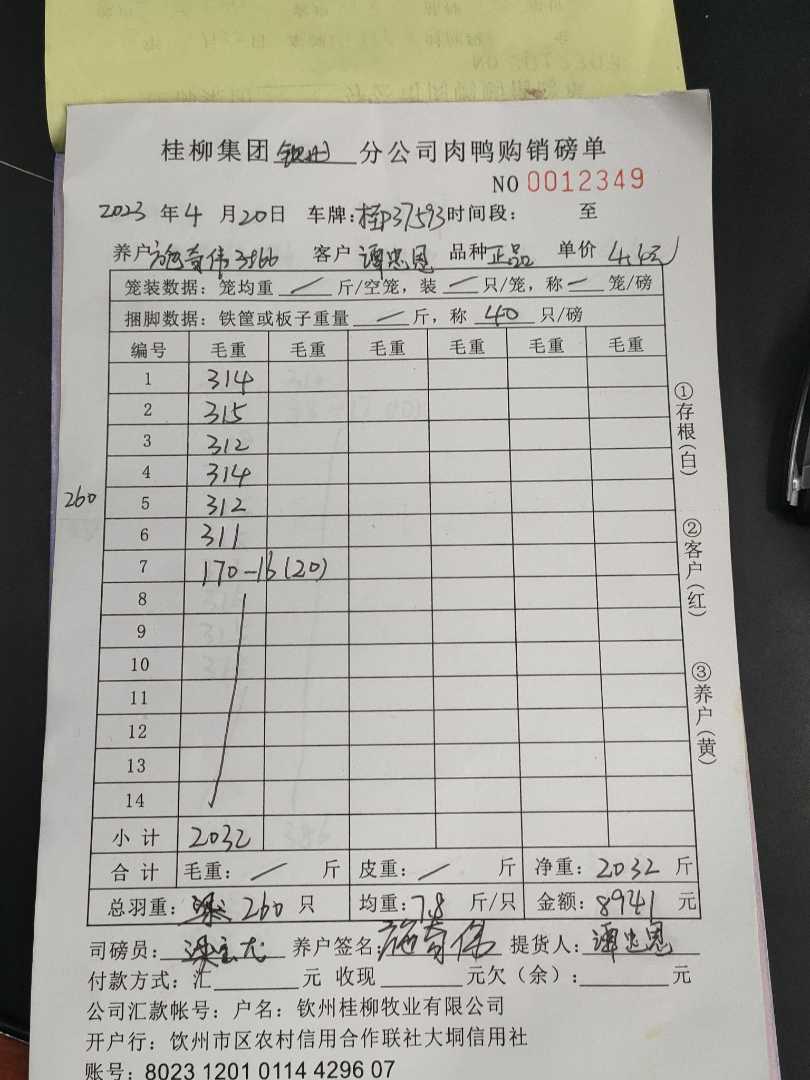 桂柳集团 钦州 分公司肉鸭购销磅单
NO 0012349
2023 年 4 月 20 日 车牌:桂P37593 时间段: 至
养户 施奇伟 3966 客户 谭忠恩 品种 正品 单价 4.4元
笼装数据:笼均重 / 斤/空笼,装 / 只/笼,称 / 笼/磅
捆脚数据:铁筐或板子重量 / 斤,称 40 只/磅
编号 毛重 毛重 毛重 毛重 毛重 毛重
1 314
2 315
3 312
4 314
5 312
6 311
7 170-16(20)
8
9
10
11
12
13
14
260
小计 2032
合计 毛重: / 斤 皮重: / 斤 净重:2032 斤
总羽重: 260 只 均重:7.8 斤/只 金额:8941 元
司磅员: 养户签名:施奇伟 提货人:谭忠恩
付款方式:汇 元 收现 元欠(余): 元
公司汇款帐号:户名:钦州桂柳牧业有限公司
开户行:钦州市区农村信用合作联社大垌信用社
账号:8023 1201 0114 4296 07
①存根(白)
②客户(红)
③养户(黄)